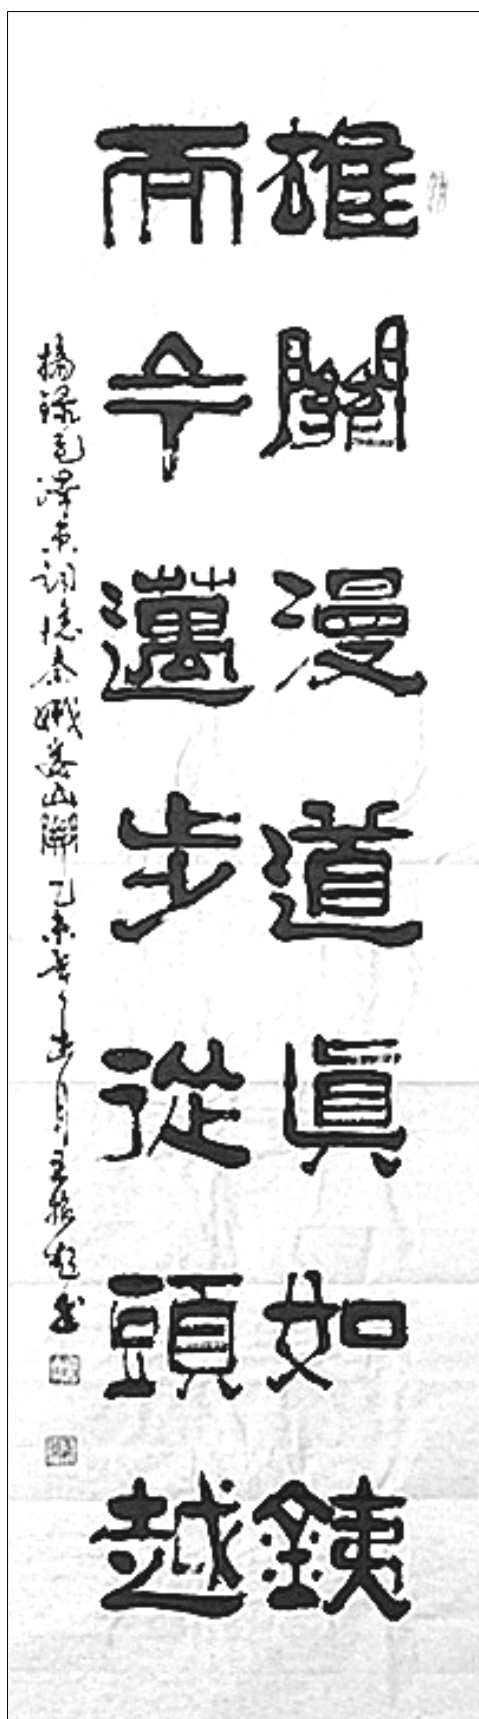 雄關漫道眞如銕
而今邁步從頭越
摘錄毛澤東詞憶秦娥婁山關 乙未 月王振